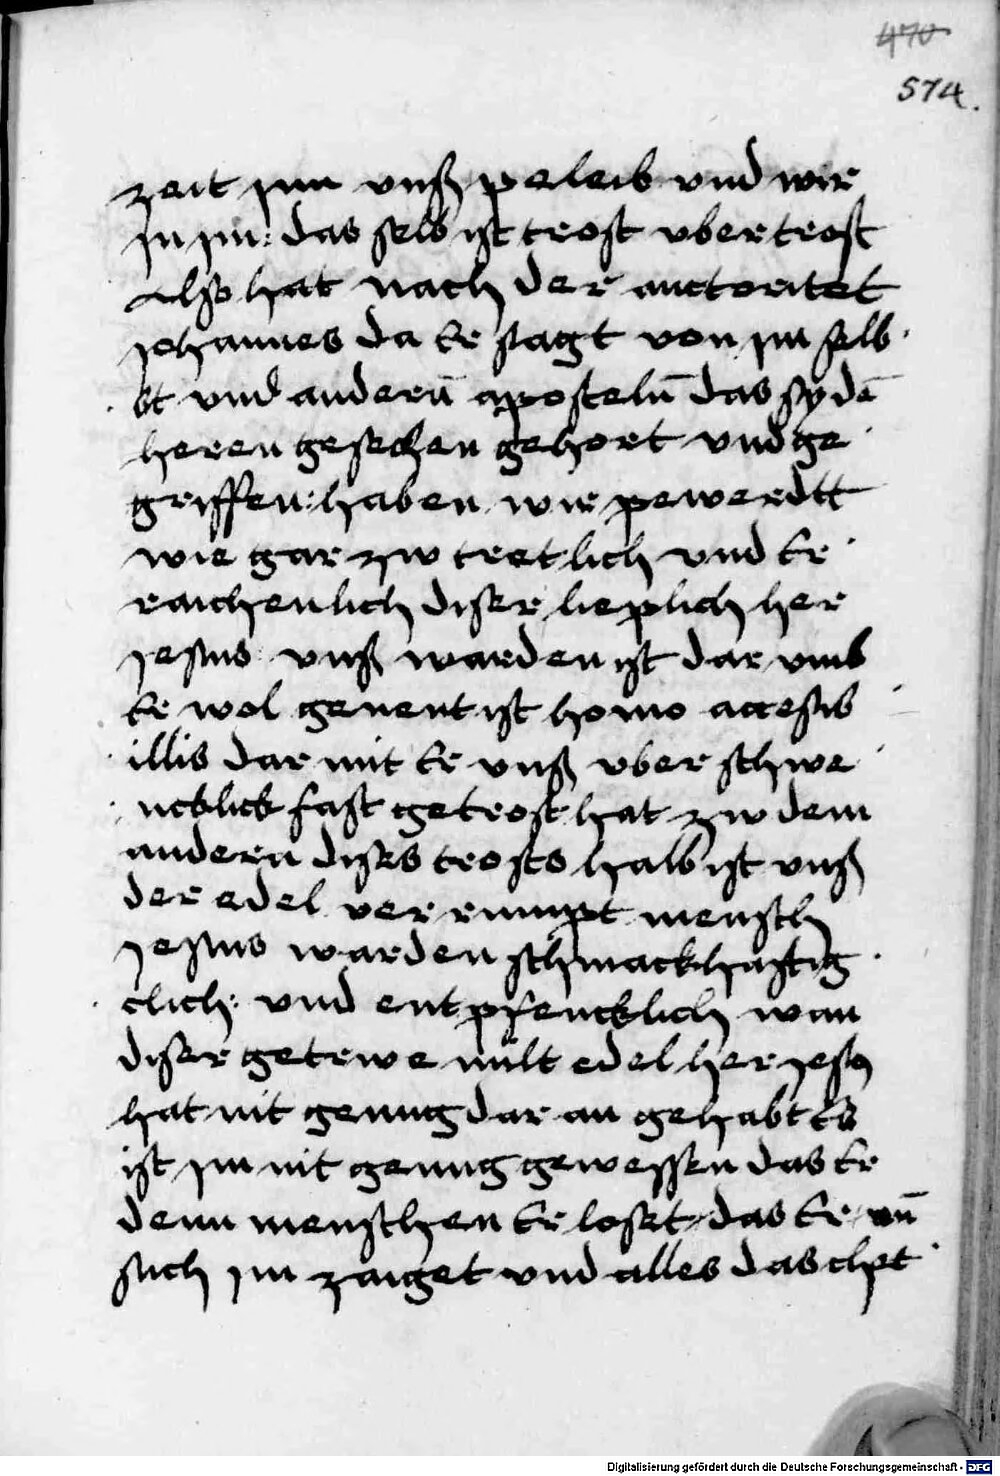 470
574.
zeit jnn vnß peleib vnd wir
jn jm: das selb ist trost vber trost
Also hat nach der auctoritet
johannes da Er sagt von jm selb
st vnd andern̄ aposteln̄ das sy dē
heren gesechen gehort vnd ge
griffen: haben wir pewerdtt
wie gar zw tretlich vnd Er
raichenlich diser lieplich her
jesus vnß warden ist dar vmb
Er wol genent ist homo accessib
illis dar mit Er vnß vber schwe
ncklick fast getrost hat zw dem
andern dises trosts halb ist vnß
der edel ver rumpt mensch
jesus warden schmackhafftig
clich: vnd entpfencklich wan
diser getrwe milt edel her jesus
hat nit genug dar an gehabt Es
ist jm nit genug gewessen das Er
denn menschen Er loset das Er vn̄
sich jm zaiget vnd alles das
Digitalisierung gefördert durch die Deutsche Forschungsgemeinschaft - DFG